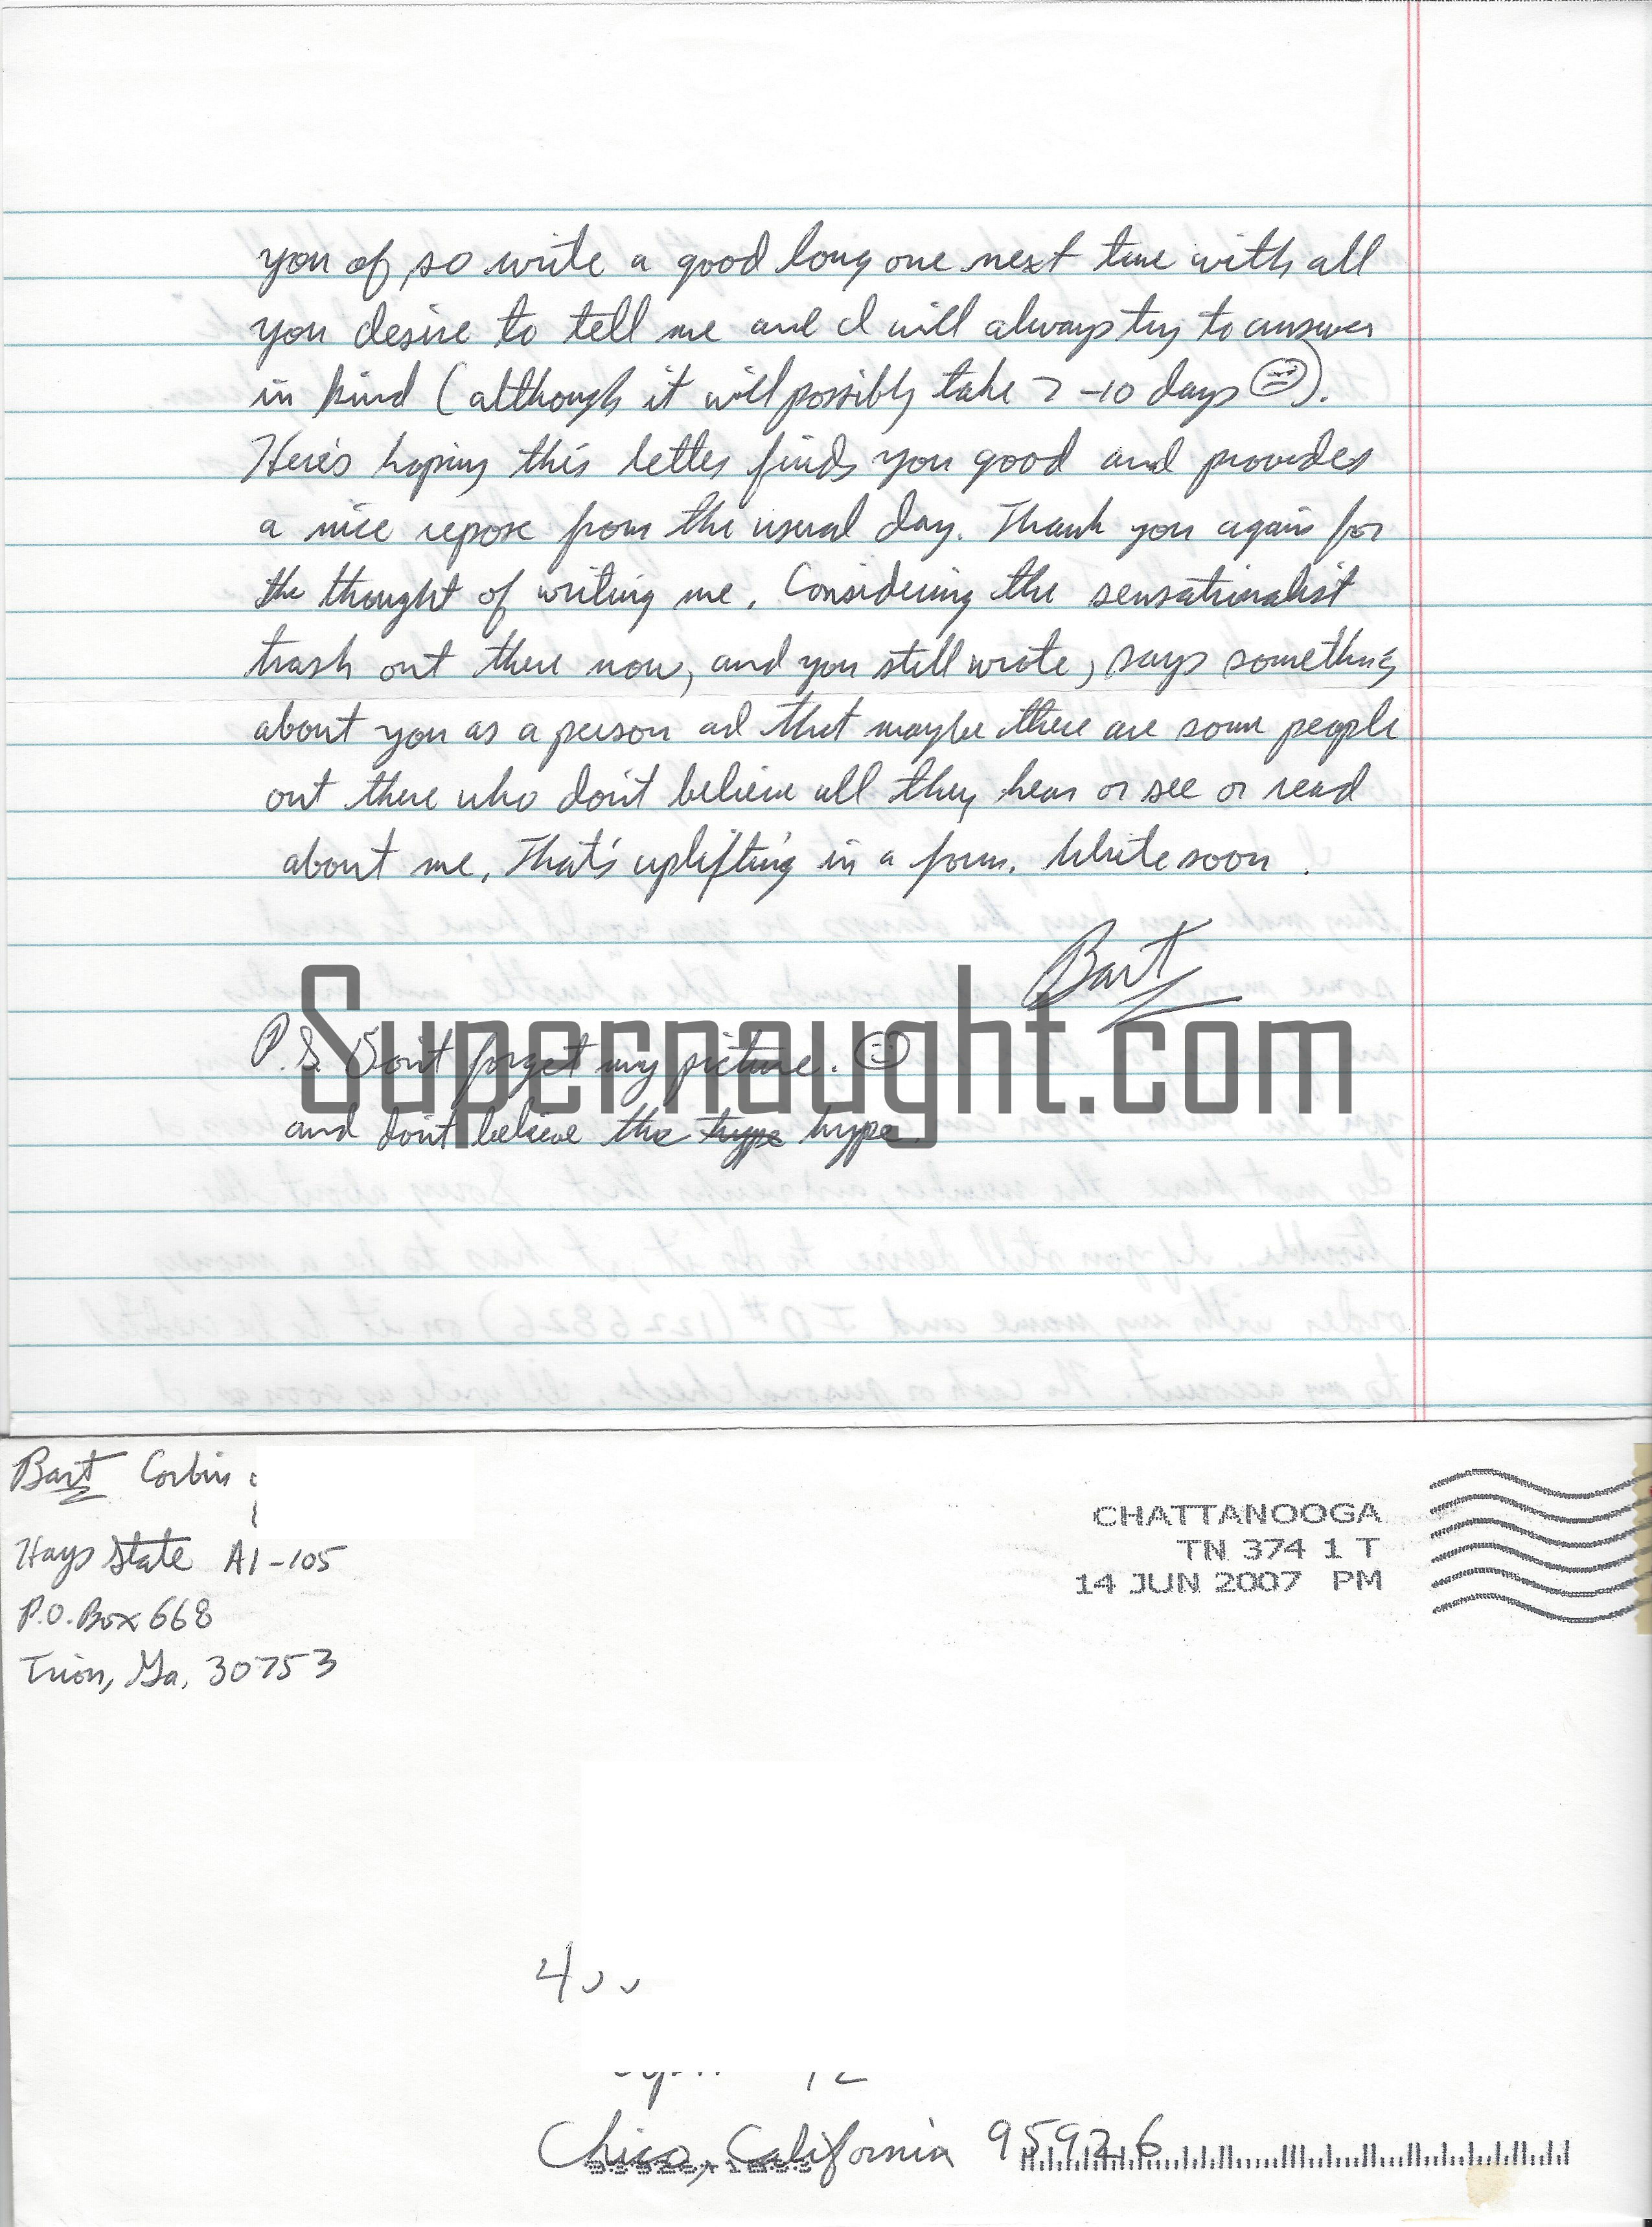 you of so write a good long one next time with all
you desire to tell me and I will always try to answer
in kind (although it will possibly take 7-10 days ☺).
Here's hoping this letter finds you good and provides
a nice repose from the usual day. Thank you again for
the thought of writing me. Considering the sensationalist
trash out there now, and you still wrote, says something
about you as a person ad that maybe there are some people
out there who don't believe all they hear or see or read
about me. That's uplifting in a form. Write soon.
Bart
Supernaught.com
P.S. Don't forget my picture. ☺
and don't believe the hype hype
Bart Corbin
Hays State A1-105
P.O. Box 668
Trion, Ga. 30753
CHATTANOOGA
TN 374 1 T
14 JUN 2007 PM
4
Chico, California 95926